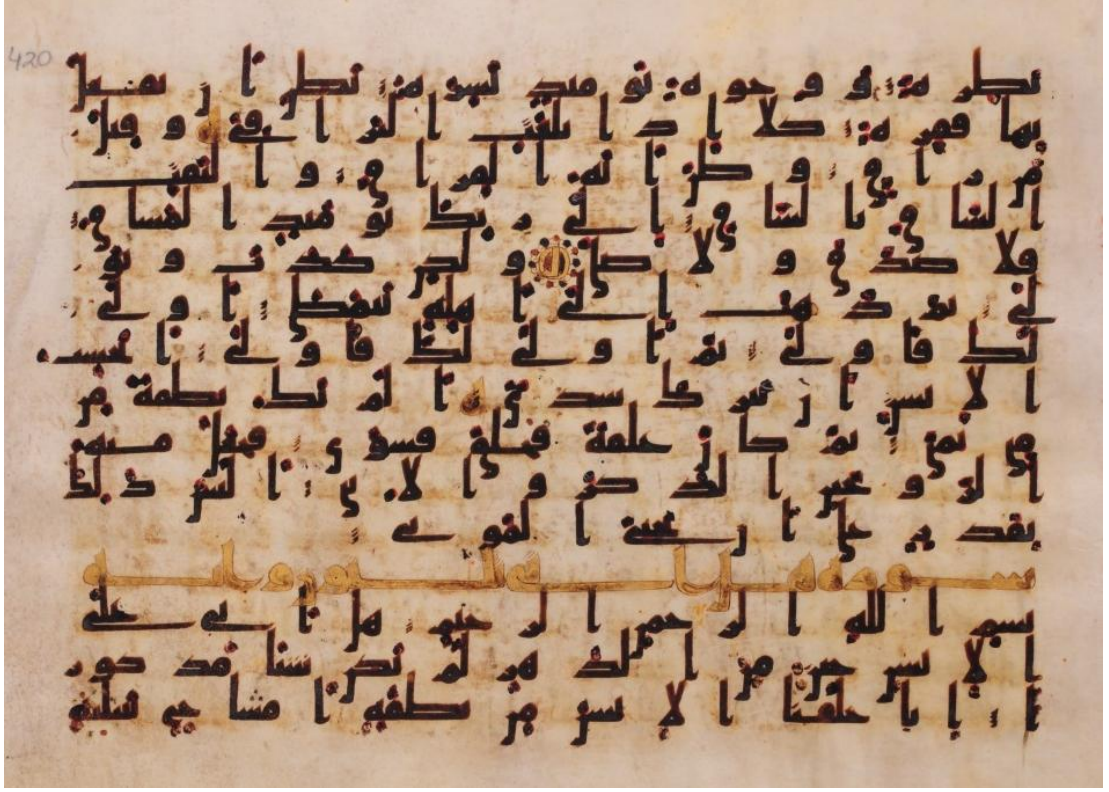 420
نظرة ووجوه يومئذ بسرة تظن أن يفعل
بها فقرة كلا إذا بلغت التراقي وقيل
من راق وظن أنه الفراق والتفت
الساق بالساق إلى ربك يومئذ المساق
فلا صدق ولا صلى ولكن كذب وتو
لى ثم ذهب إلى أهله يتمطى أولى
لك فأولى ثم أولى لك فأولى أيحسب
الإنسن أن يترك سدى ألم يك نطفة من
مني يمنى ثم كان علقة فخلق فسوى فجعل منه
الزوجين الذكر والأنثى أليس ذلك
بقدر على أن يحيي الموتى
سورة هل أتى ثلثون وآية
بسم الله الرحمن الرحيم هل أتى على
الإنسن حين من الدهر لم يكن شيئا مذكور
ا إنا خلقنا الإنسن من نطفة أمشاج نبتليه